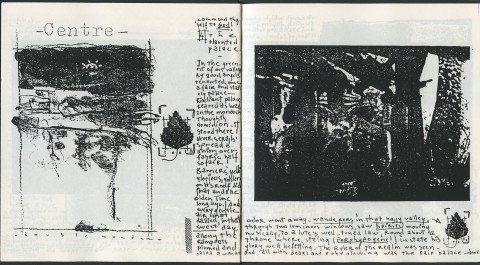 -Centre-
commend thy
self to God!
The
Haunted
Palace
In the green
est of our valleys
by good angels
tenanted, once
a fair and stat
ely palace—
Radiant palace
reared its head
in the monarch
Thought's
dominion - it
stood there!
Never seraph
spread a
pinion over
fabric half
so fair!
Banners yellow
glorious, golden
on its roof did
float and
olden time
long ago) And
every gentle
air that
dallied, in that
sweet day,
along the
ramparts
plumed and
odor went away. wanderers in that happy valley,
through two luminous windows, saw spirits moving
musically, To a lute's well-tuned law, Round about a
throne where, sitting (Porphyrogene!) in state his
glory well befitting, The ruler of the realm was seen.
And all with pearl and ruby glowing was the fair palace door